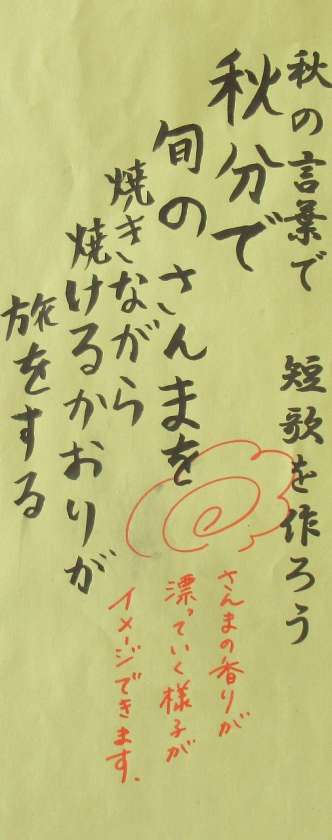 秋の言葉で 短歌を作ろう
秋分で
旬のさんまを
焼きながら
焼けるかおりが
旅をする
さんまの香りが
漂っていく様子が
イメージできます.